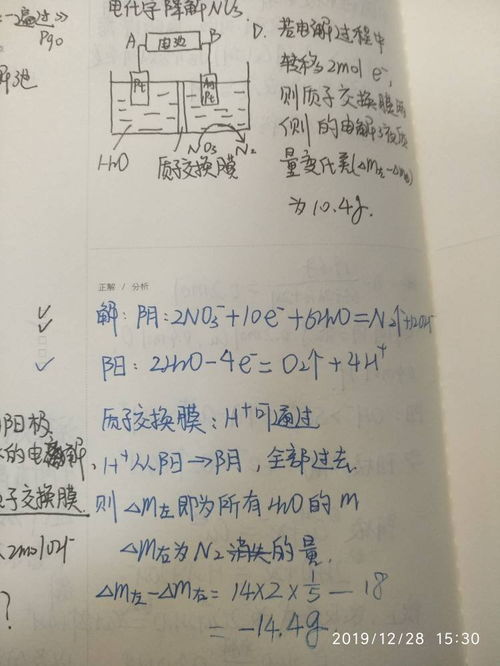 一遍过>>
P90
解池
电化学降解NO₃⁻
A 电池 B
Pt Ag Pt
H₂O 质子交换膜 NO₃⁻ N₂
D. 若电解过程中
转移2mol e⁻,
则质子交换膜两
侧的电解液质
量变化差(△m左-△m右)
为10.4g.
正解 / 分析
解: 阴: 2NO₃⁻+10e⁻+6H₂O=N₂↑+12OH⁻
阳: 2H₂O-4e⁻=O₂↑+4H⁺
质子交换膜: H⁺可通过
H⁺从阳→阴, 全部过去.
则△m左即为所有H₂O的m
△m右为N₂消失的量.
△m左-△m右=14×2×1/5-18
=-14.4g
阳极
的电解
子交换膜
2mol OH⁻
?
2019/12/28 15:30